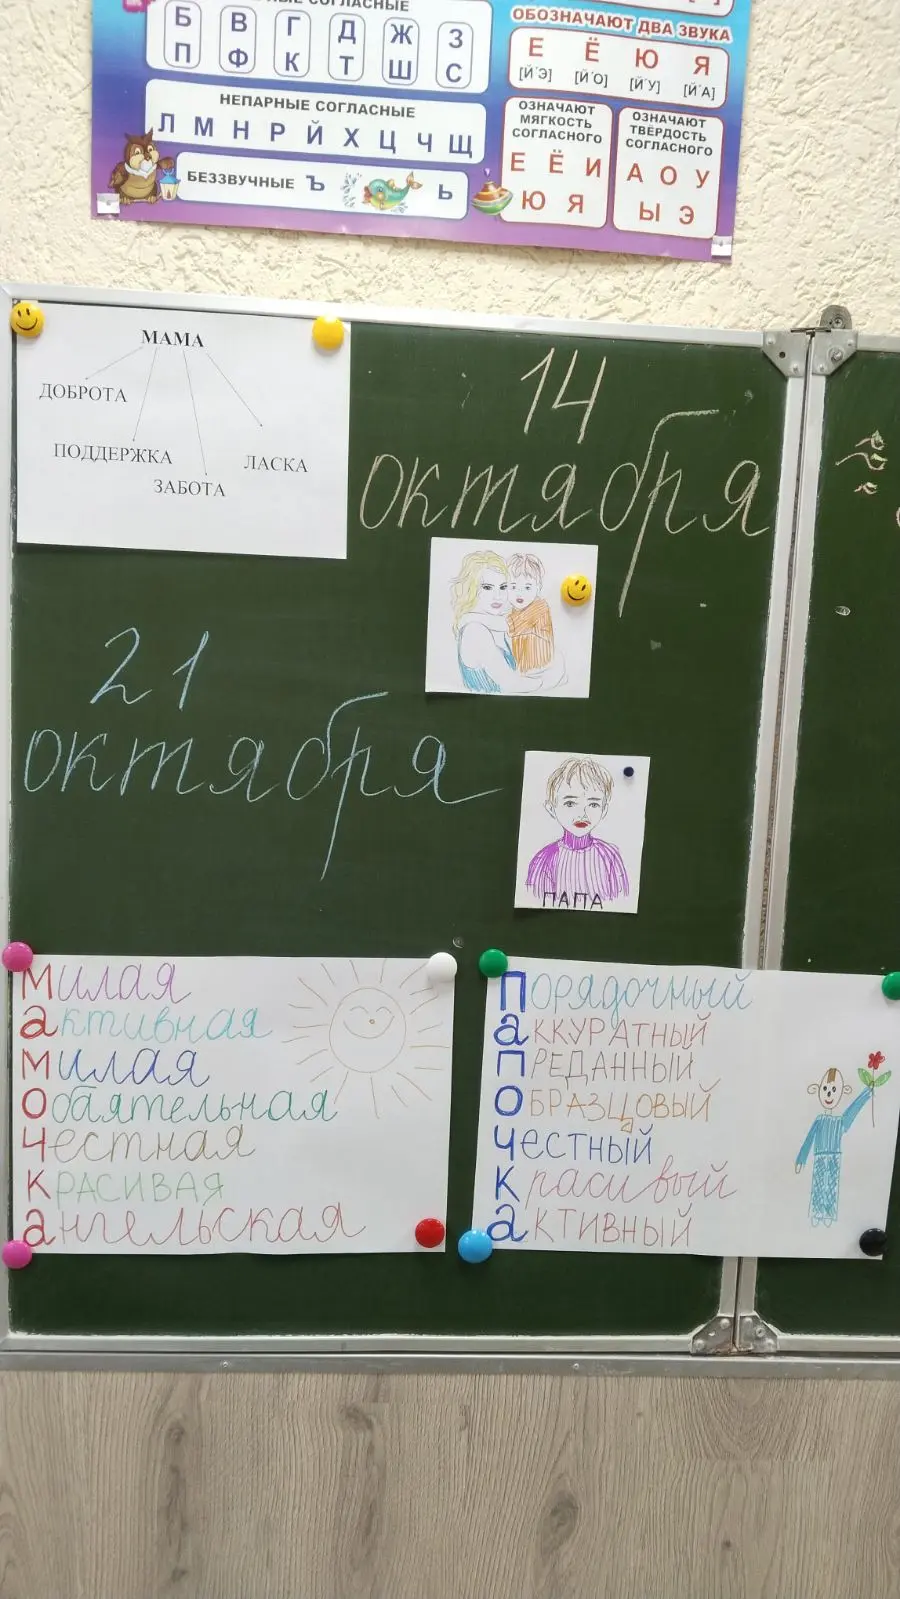 НЫЕ СОГЛАСНЫЕ
Б В Г Д Ж З
П Ф К Т Ш С
НЕПАРНЫЕ СОГЛАСНЫЕ
Л М Н Р Й Х Ц Ч Щ
БЕЗЗВУЧНЫЕ Ъ Ь
ОБОЗНАЧАЮТ ДВА ЗВУКА
Е Ё Ю Я
[Й'Э] [Й'О] [Й'У] [Й'А]
ОЗНАЧАЮТ
МЯГКОСТЬ
СОГЛАСНОГО
Е Ё И
Ю Я
ОЗНАЧАЮТ
ТВЁРДОСТЬ
СОГЛАСНОГО
А О У
Ы Э
МАМА
ДОБРОТА
ПОДДЕРЖКА
ЗАБОТА
ЛАСКА
14
октября
21
октября
ПАПА
Милая
активная
милая
Обаятельная
Честная
КРАСИВАЯ
ангельская
Порядочный
аККУРАТНЫЙ
ПРЕДАННЫЙ
ОБРАЗЦОВЫЙ
ЧЕСТНЫЙ
Красивый
аКТИВНЫЙ